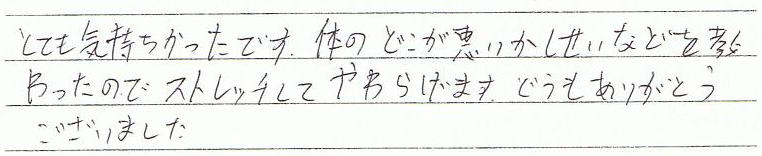 とても気持ちかったです.体のどこが悪いかしせいなどを教
わったのでストレッチしてやわらげます.どうもありがとう
ございました